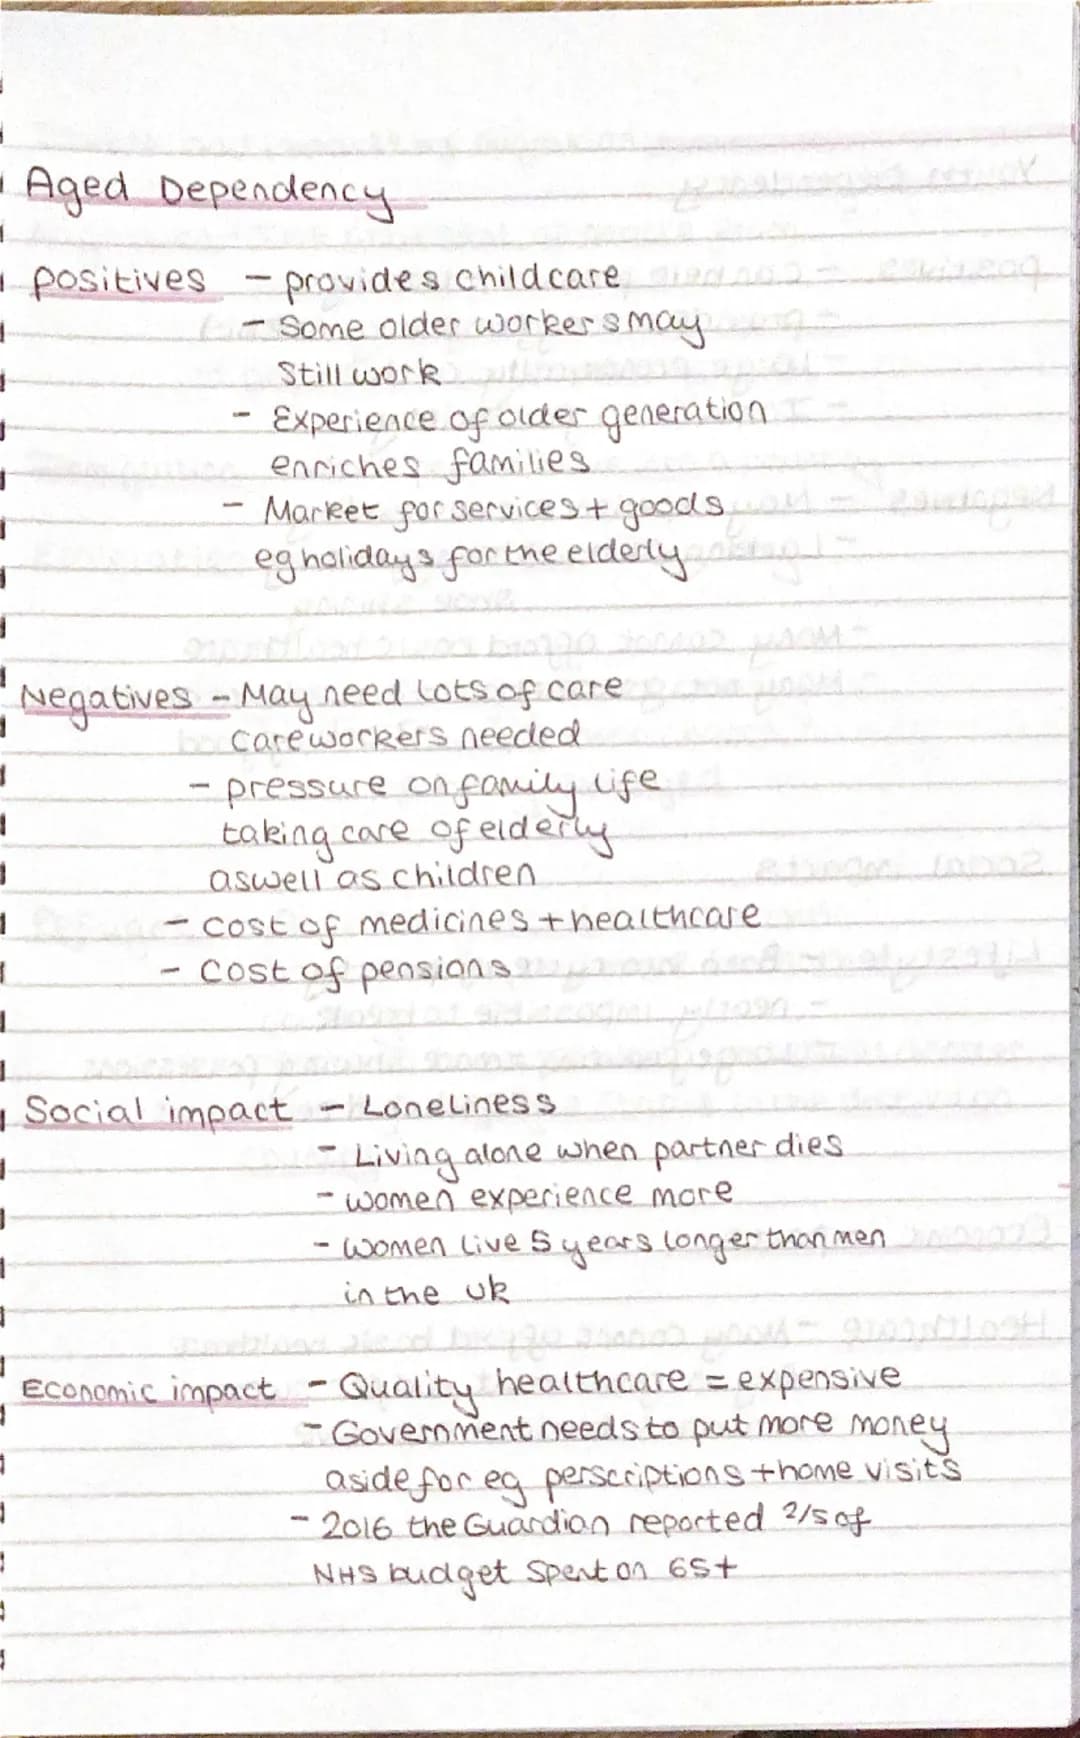 Aged Dependency
positives - provides childcare
- Some older workers may
Still work
- Experience of older generation
enriches families
- Market for services + goods
eg holidays for the elderly
Negatives - May need lots of care
careworkers needed
- pressure on family life
taking care of elderly
aswell as children
- cost of medicines + healthcare
- cost of pensions
Social impact - Loneliness
- Living alone when partner dies
- women experience more
- women live 5 years longer than men
in the uk
Economic impact - Quality healthcare = expensive
- Government needs to put more money
aside for eg perscriptions + home visits
- 2016 the Guardian reported 2/5 of
NHS budget spent on 65+